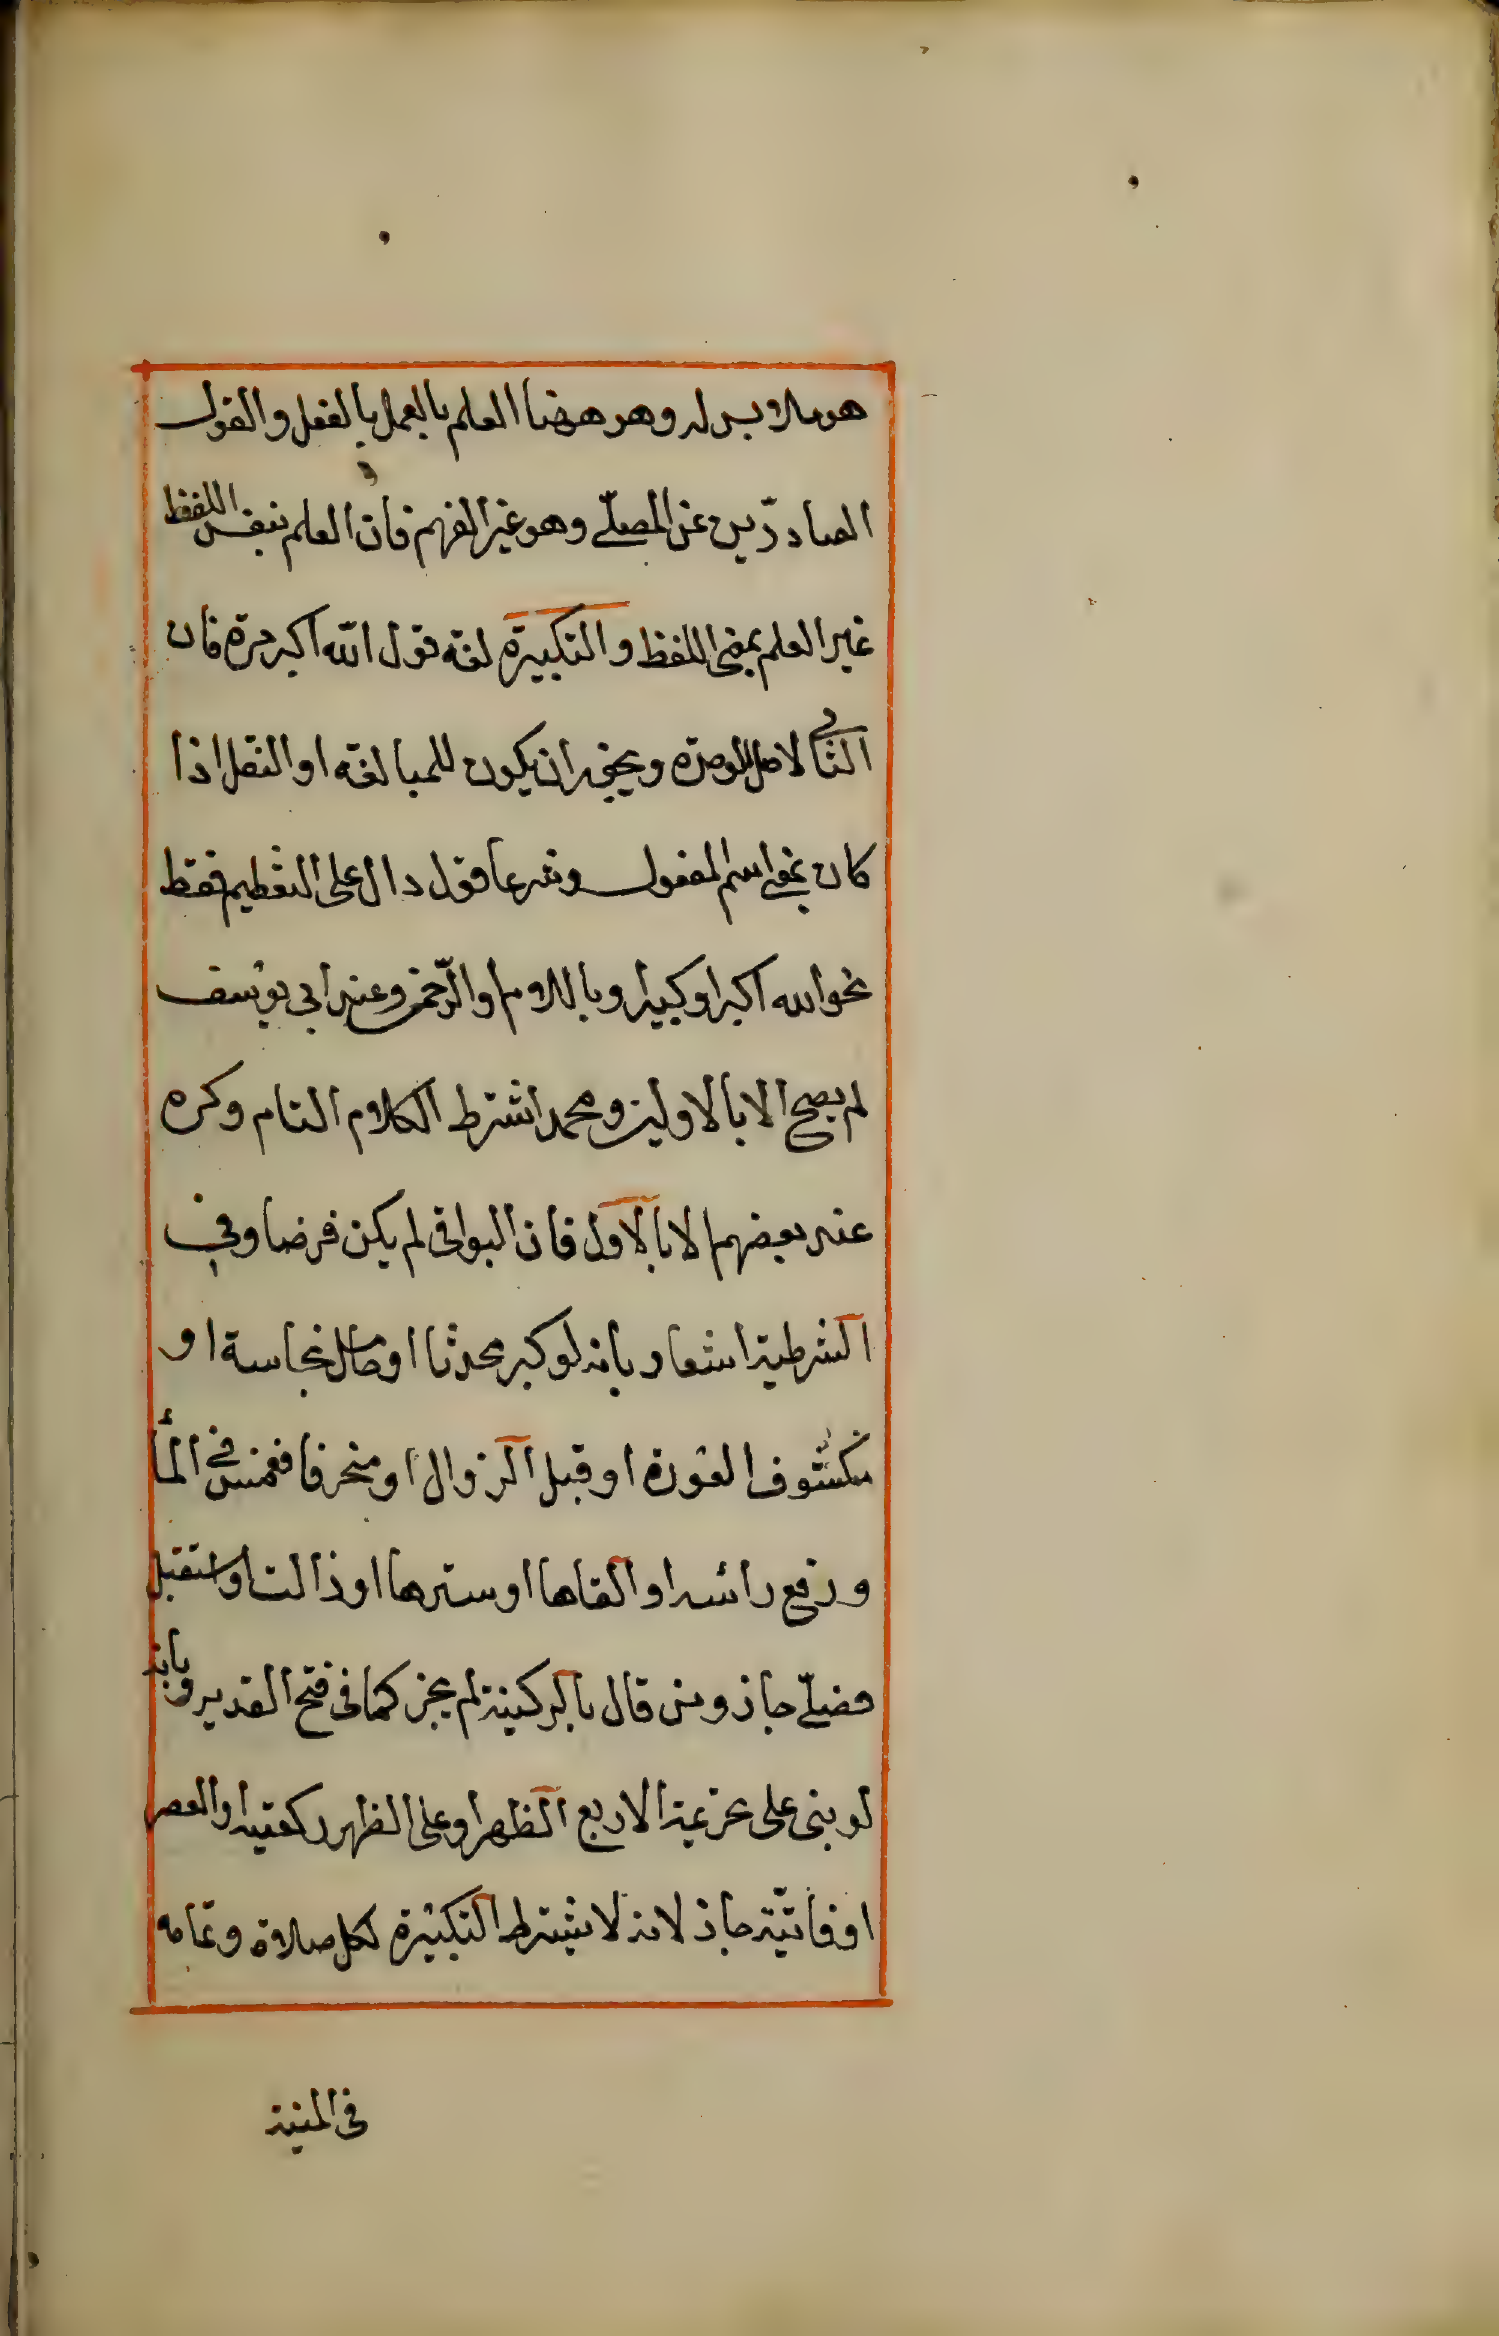 هو ملابس له وهو ههنا العلم بالعمل بالفعل والقول
الصادرين عن المصلّي وهو غير الفهم فان العلم بنفس اللفظ
غير العلم بمعنى اللفظ والتكبيرة لغة قول الله اكبر مرة فان
التا في الاصل للوحدة ويجوز ان يكون للمبالغة او النقل اذا
كان بمعنى اسم المفعول وشرعا قول دال على التعظيم فقط
نحو الله اكبر او كبير او باللام او الرّحمن وعند ابي يوسف
لم يصح الا بالاولين ومحمد اشترط الكلام التام وكره
عند بعضهم الا بالاول فان البواقى لم يكن فرضا وفي
الشرطية اشعار بانه لو كبر محدثا او حامل نجاسة او
مكشوف العورة او قبل الزوال او منحرفا فغمس في الماء
ورفع رأسه او القاها او سترها او زالت او استقبل
فصلّى جاز ومن قال بالركنية لم يجز كما فى فتح القدير وبانه
لو بنى على تحريمة الاربع الظهر او على الظهر ركعتيه او العصر
او فائتة جاز لانه لا يشترط التكبيرة لكل صلاة وتمامه
فى المنية